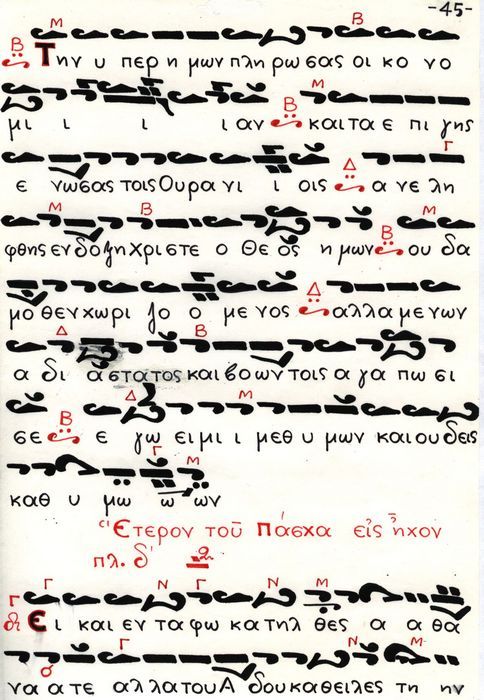 -45-
Την υ περ η μων πλη ρω σας οι κο νο
μι ι ι ι αν και τα ε πι γης
ε νω σας τοις Ου ρα νι ι οις α νε λη
φθης εν δο ξη Χρι στε ο Θε ος η μων ου δα
μο θεν χωρι ζο ο με νος αλλα με νων
α δι ά στα τος και βο ων τοις α γα πω σι
σε ε γω ει μι ι με θυ μων και ου δεις
καθ υ μω ω ων
Έτερον τοῦ Πάσχα εἰς ἦχον
πλ. δ'
Ει και εν τα φω κα τηλ θες α α θα
να α τε αλλα του Α δου κα θει λες τη ην